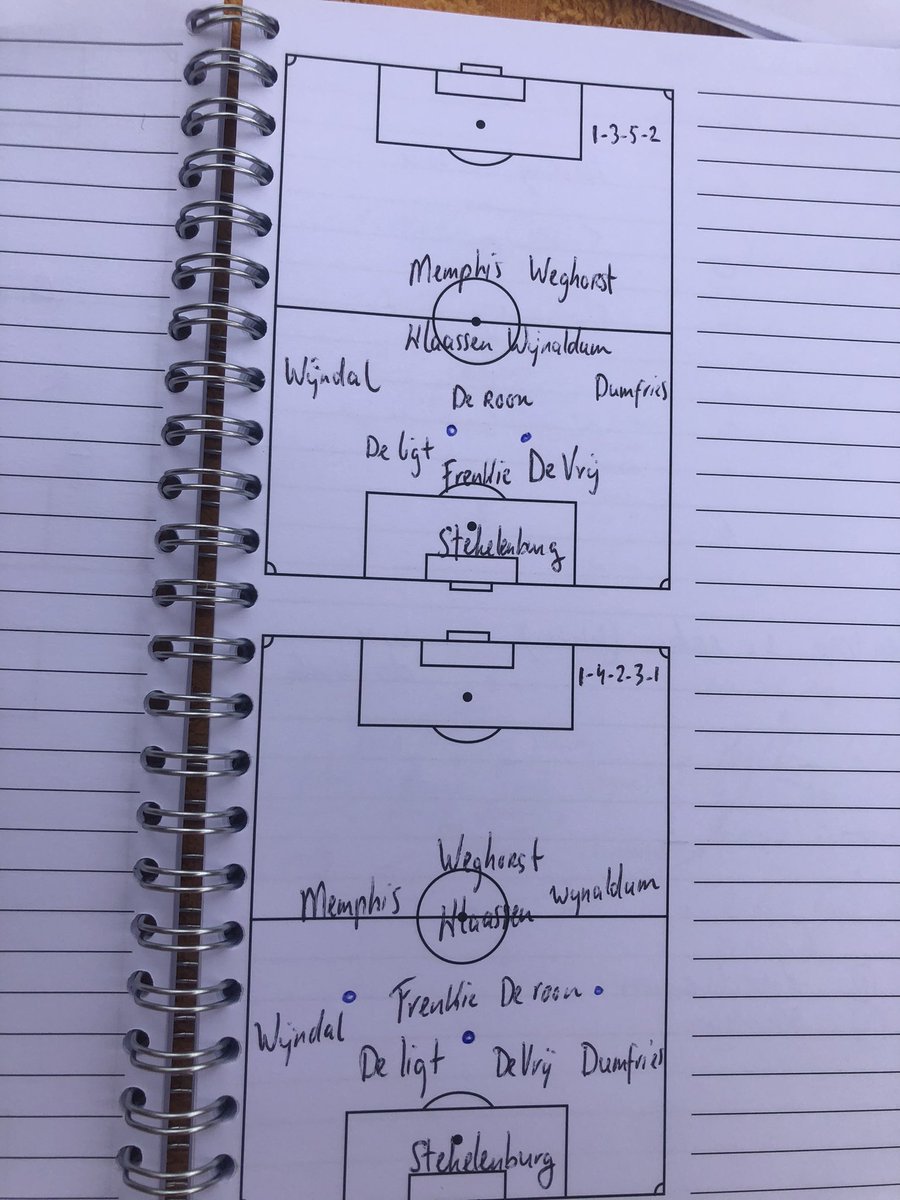 1-3-5-2
Memphis Weghorst
Klaassen Wijnaldum
Wijndal De Roon Dumfries
De ligt Frenkie De Vrij
Stekelenburg
1-4-2-3-1
Weghorst
Memphis Klaassen Wijnaldum
Frenkie De roon
Wijndal De ligt De Vrij Dumfries
Stekelenburg